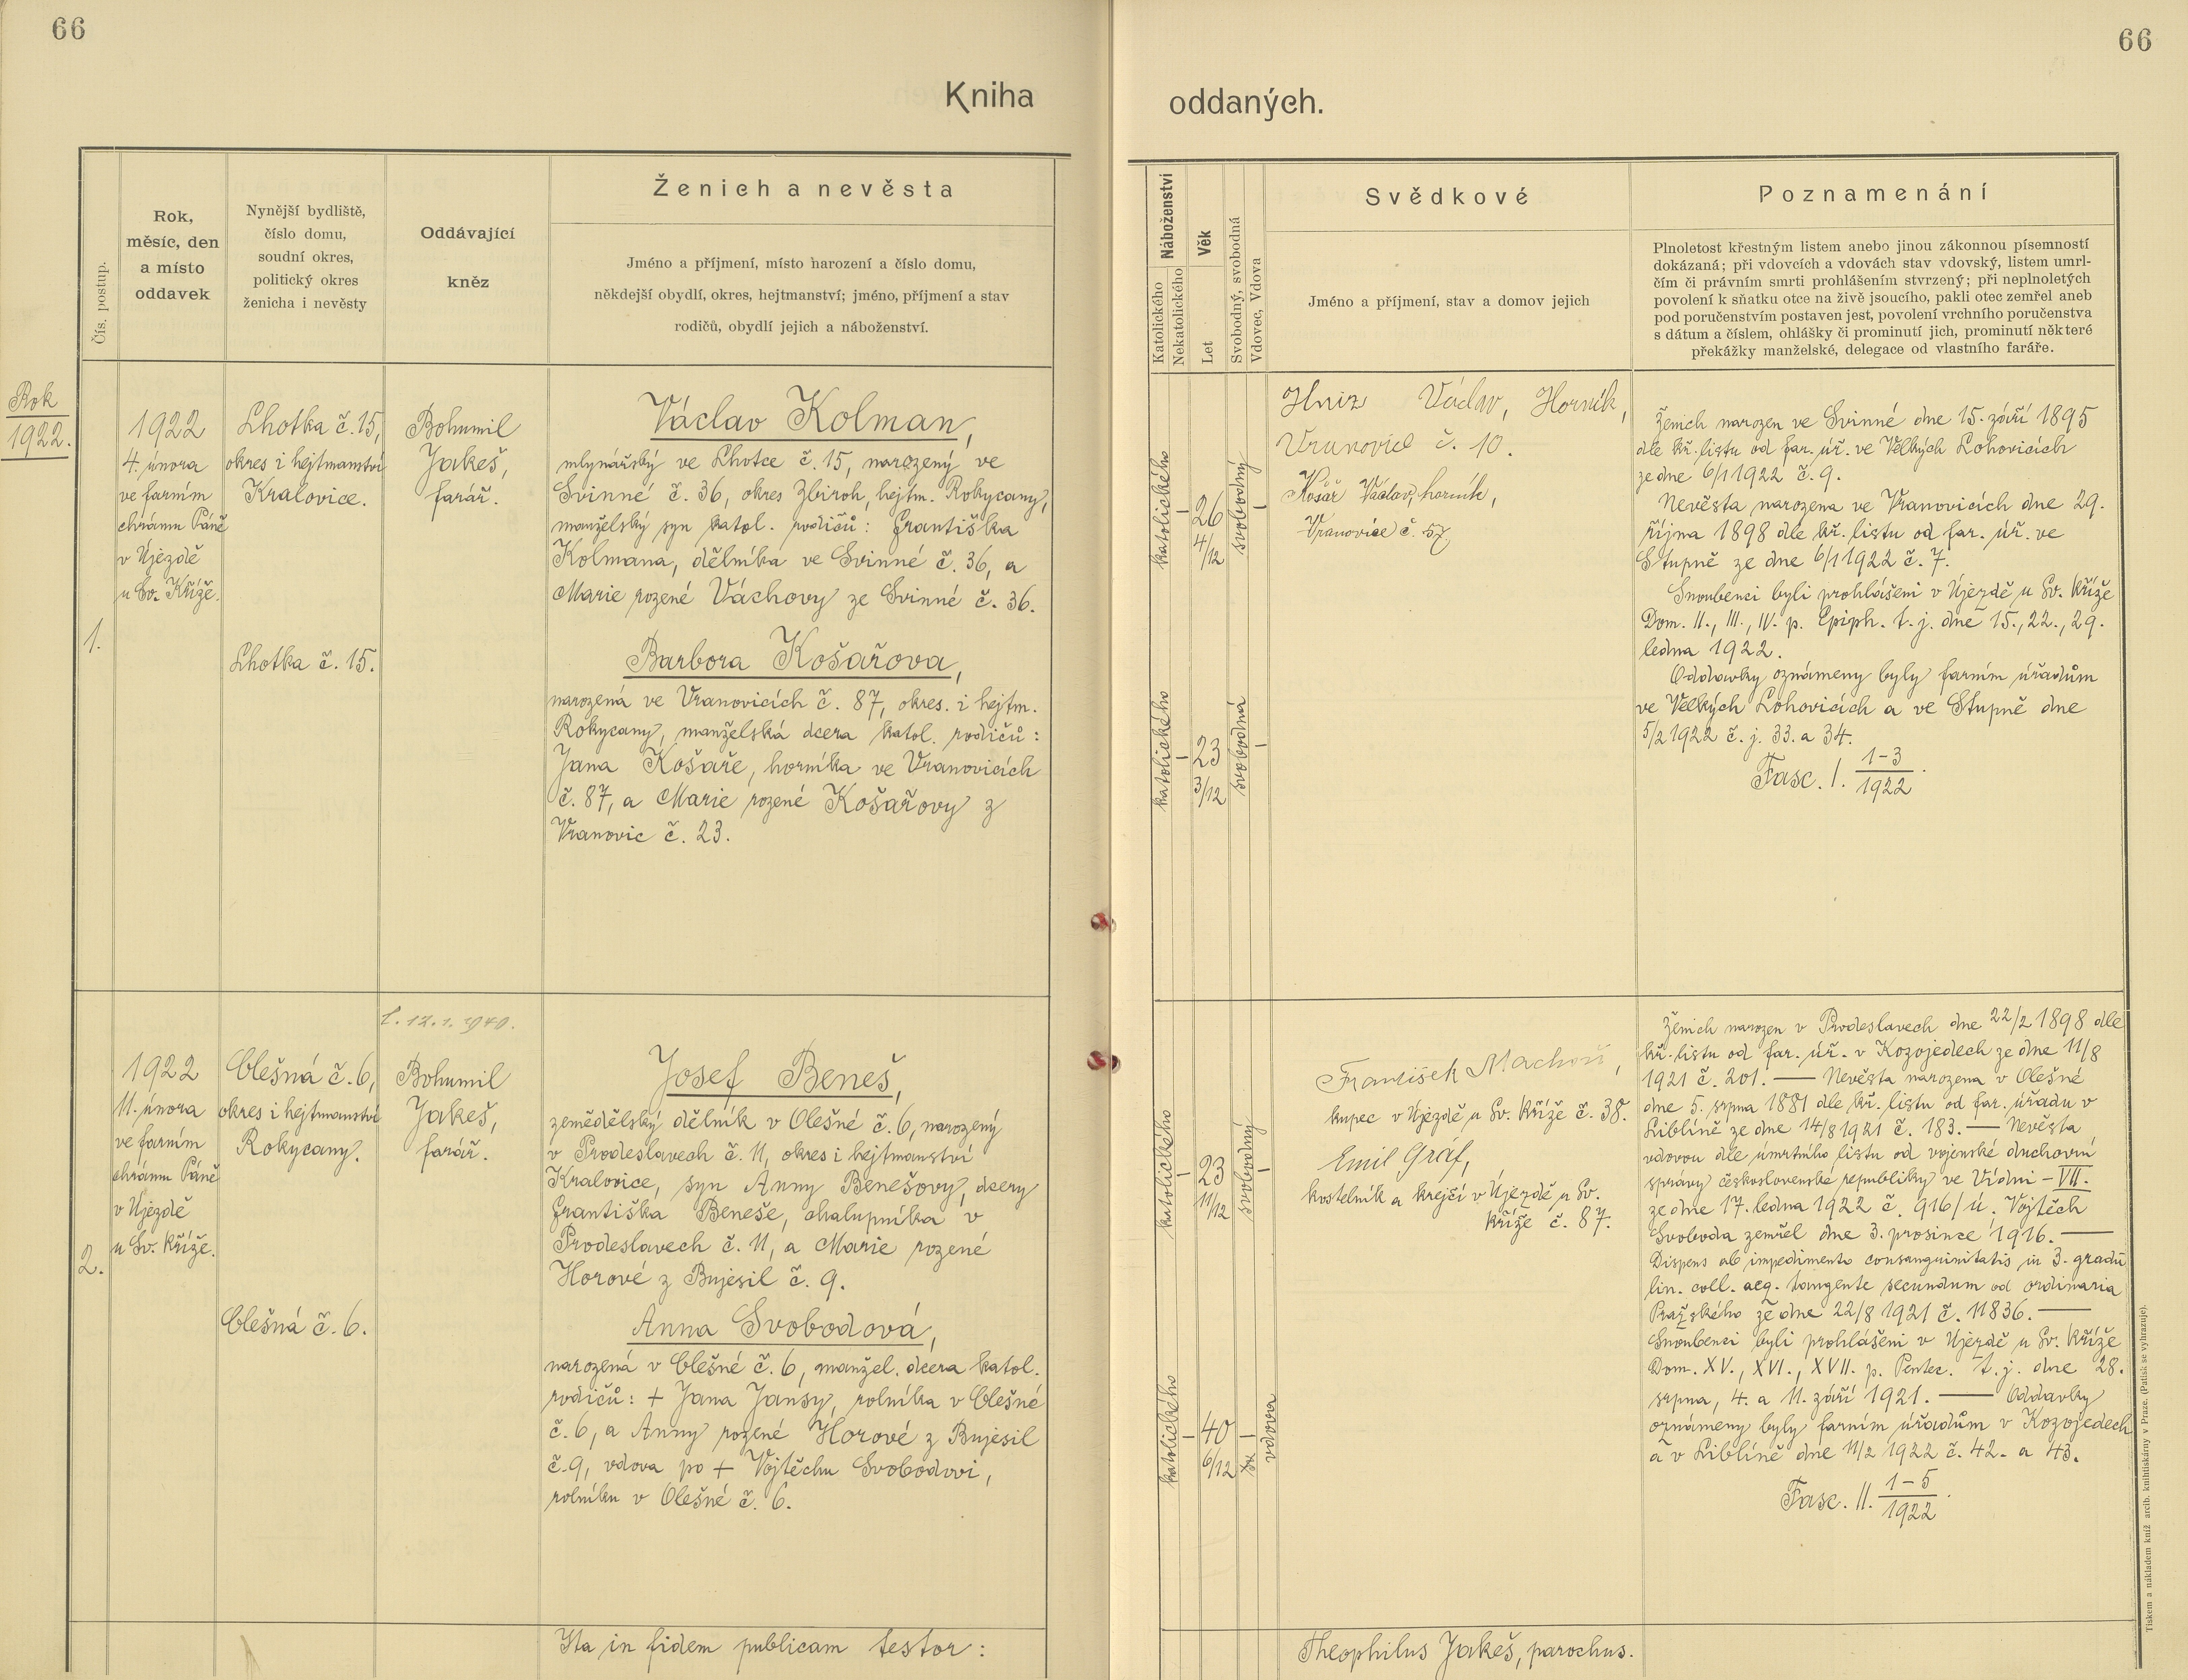 66
66
Kniha
oddaných.
Čís. postup.
Rok,
měsíc, den
a místo
oddavek
Nynější bydliště,
číslo domu,
soudní okres,
politický okres
ženicha i nevěsty
Oddávající
kněz
Ženich a nevěsta
Jméno a příjmení, místo narození a číslo domu,
někdejší obydlí, okres, hejtmanství; jméno, příjmení a stav
rodičů, obydlí jejich a náboženství.
Náboženství
Katolického
Nekatolického
Věk
Let
Svobodný, svobodná
Vdovec, Vdova
Svědkové
Jméno a příjmení, stav a domov jejich
Poznamenání
Plnoletost křestným listem anebo jinou zákonnou písemností
dokázaná; při vdovcích a vdovách stav vdovský, listem umrl-
čím či právním smrti prohlášením stvrzený; při neplnoletých
povolení k sňatku otce na živě jsoucího, pakli otec zemřel aneb
pod poručenstvím postaven jest, povolení vrchního poručenstva
s dátum a číslem, ohlášky či prominutí jich, prominutí některé
překážky manželské, delegace od vlastního faráře.
Rok
1922.
1.
1922
4. února
ve farním
chrámu Páně
v Újezdě
u Sv. Kříže.
Lhotka č. 15,
okres i hejtmanství
Kralovice.
Lhotka č. 15.
Bohumil
Jakeš,
farář.
Václav Kolman,
mlynářský ve Lhotce č. 15, narozený ve
Svinné č. 36, okres Zbiroh, hejtm. Rokycany,
manželský syn katol. rodičů: Františka
Kolmana, dělníka ve Svinné č. 36, a
Marie rozené Váchovy ze Svinné č. 36.
Barbora Košařova,
narozená ve Vranovicích č. 87, okres. i hejtm.
Rokycany, manželská dcera katol. rodičů:
Jana Košaře, horníka ve Vranovicích
č. 87, a Marie rozené Košařovy z
Vranovic č. 23.
katolického
–
26
4/12
svobodný
–
katolického
–
23
3/12
svobodná
–
Hniz Václav, Horník,
Vranovice č. 10.
Košař Václav, horník,
Vranovice č. 57,
Ženich narozen ve Svinné dne 15. září 1895
dle kř. listu od far. úř. ve Velkých Lohovicích
ze dne 6/1 1922 č. 9.
Nevěsta narozena ve Vranovicích dne 29.
října 1898 dle kř. listu od far. úř. ve
Stupně ze dne 6/1 1922 č. 7.
Snoubenci byli prohlášeni v Újezdě u Sv. Kříže
Dom. II., III., IV. p. Epiph. t. j. dne 15., 22., 29.
ledna 1922.
Oddavky oznámeny byly farním úřadům
ve Velkých Lohovicích a ve Stupně dne
5/2 1922 č. j. 33. a 34.
Fasc. I. 1-3/1922.
2.
1922
11. února
ve farním
chrámu Páně
v Újezdě
u Sv. Kříže.
Olešná č. 6,
okres i hejtmanství
Rokycany.
Olešná č. 6.
12. 1. 1940.
Bohumil
Jakeš,
farář.
Josef Beneš,
zemědělský dělník v Olešné č. 6, narozený
v Prodeslavech č. 11, okres i hejtmanství
Kralovice, syn Anny Benešovy, dcery
Františka Beneše, chalupníka v
Prodeslavech č. 11, a Marie rozené
Horové z Bujesil č. 9.
Anna Svobodová,
narozená v Olešné č. 6, manžel. dcera katol.
rodičů: + Jana Jansy, rolníka v Olešné
č. 6, a Anny rozené Horové z Bujesil
č. 9, vdova po + Vojtěchu Svobodovi,
rolníku v Olešné č. 6.
katolického
–
23
11/12
svobodný
–
katolického
–
40
6/12
–
vdova
František Machoň,
kupec v Újezdě u Sv. Kříže č. 38.
Emil Gráf,
kostelník a krejčí v Újezdě u Sv.
Kříže č. 87.
Ženich narozen v Prodeslavech dne 22/2 1898 dle
kř. listu od far. úř. v Kozojedech ze dne 11/8
1921 č. 201. — Nevěsta narozena v Olešné
dne 5. srpna 1881 dle kř. listu od far. úřadu v
Liblíně ze dne 14/8 1921 č. 183. — Nevěsta
vdovou dle úmrtního listu od vojenské duchovní
správy československé republiky ve Vídni – VII.
ze dne 17. ledna 1922 č. 916/ú. Vojtěch
Svoboda zemřel dne 3. prosince 1916. —
Dispens ab impedimento consanguinitatis in 3. gradu
lin. coll. aeq. tangente secundum od ordinaria
Pražského ze dne 22/8 1921 č. 11836. —
Snoubenci byli prohlášeni v Újezdě u Sv. Kříže
Dom. XV., XVI., XVII. p. Pentec. t. j. dne 28.
srpna, 4. a 11. září 1921. — Oddavky
oznámeny byly farním úřadům v Kozojedech
a v Liblíně dne 11/2 1922 č. 42. a 43.
Fasc. II. 1-5/1922.
Ita in fidem publicam testor:
Theophilus Jakeš, parochus.
Tiskem a nákladem kníž. arcib. knihtiskárny v Praze. (Patisk se vyhrazuje).